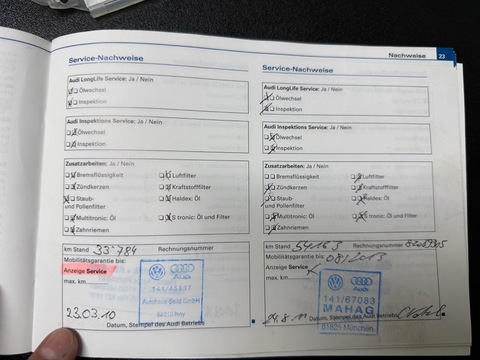 Nachweise 23
Service-Nachweise
Audi LongLife Service: Ja / Nein
Ölwechsel
Inspektion
Audi Inspektions Service: Ja / Nein
Ölwechsel
Inspektion
Zusatzarbeiten: Ja / Nein
Bremsflüssigkeit
Luftfilter
Zündkerzen
Kraftstofffilter
Staub- und Pollenfilter
Haldex: Öl
Multitronic: Öl
S tronic: Öl und Filter
Zahnriemen
km Stand 33.784 Rechnungsnummer
Mobilitätsgarantie bis:
Anzeige Service
max. km
Audi
141/
23.03.10
Datum, Stempel des Audi Betriebs
Service-Nachweise
Audi LongLife Service: Ja / Nein
Ölwechsel
Inspektion
Audi Inspektions Service: Ja / Nein
Ölwechsel
Inspektion
Zusatzarbeiten: Ja / Nein
Bremsflüssigkeit
Luftfilter
Zündkerzen
Kraftstofffilter
Staub- und Pollenfilter
Haldex: Öl
Multitronic: Öl
S tronic: Öl und Filter
Zahnriemen
km Stand 54163 Rechnungsnummer
Mobilitätsgarantie bis: 08/2013
Anzeige Service
max. km
Audi
141/67083
MAHAG
81825 München
24.8.11
Datum, Stempel des Audi Betriebs